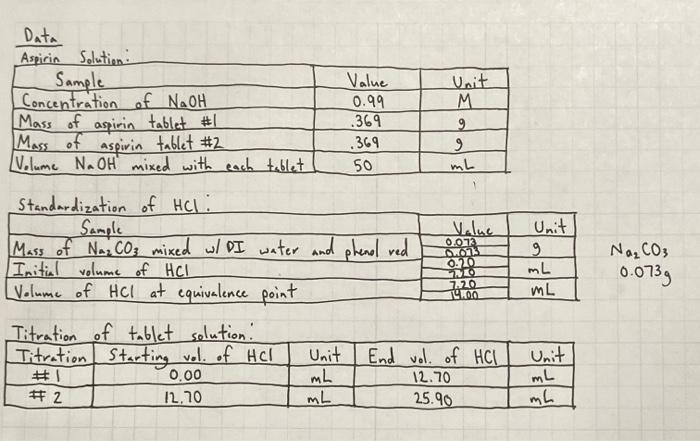 Data
Aspirin Solution:
Sample Value Unit
Concentration of NaOH 0.99 M
Mass of aspirin tablet #1 .369 g
Mass of aspirin tablet #2 .369 g
Volume NaOH mixed with each tablet 50 mL
Standardization of HCl:
Sample Value Unit
Mass of Na2CO3 mixed w/ DI water and phenol red 0.073 g
0.073
Initial volume of HCl 0.20 mL
7.20
Volume of HCl at equivalence point 7.20 mL
14.00
Na2CO3
0.073g
Titration of tablet solution:
Titration Starting vol. of HCl Unit End vol. of HCl Unit
#1 0.00 mL 12.70 mL
#2 12.70 mL 25.90 mL